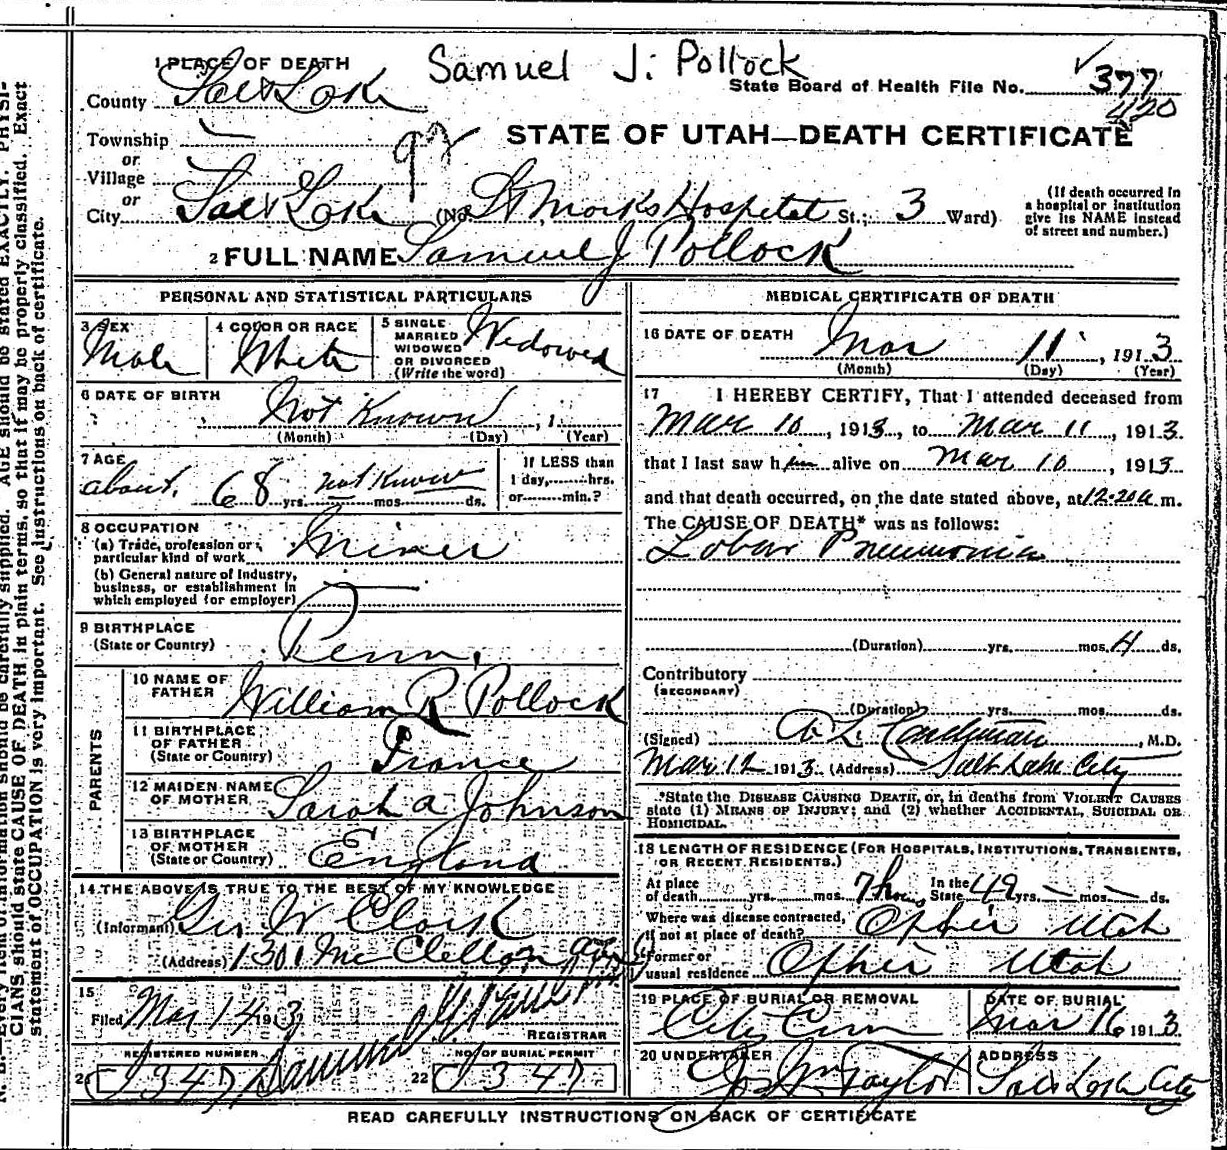 Samuel J. Pollock
1 PLACE OF DEATH
State Board of Health File No. 377
420
County Salt Lake
STATE OF UTAH—DEATH CERTIFICATE
Township
or
Village
or
92
City Salt Lake (No. St Mark's Hospital St.; 3 Ward)
(If death occurred in
a hospital or institution
give its NAME instead
of street and number.)
2 FULL NAME Samuel J Pollock
PERSONAL AND STATISTICAL PARTICULARS
3 SEX
Male
4 COLOR OR RACE
White
5 SINGLE
MARRIED
WIDOWED
OR DIVORCED
(Write the word)
Widowed
6 DATE OF BIRTH
Not Known, 1
(Month) (Day) (Year)
7 AGE
about 68 yrs. not known mos. ds.
If LESS than
1 day, hrs.
or min.?
8 OCCUPATION
(a) Trade, profession or
particular kind of work Miner
(b) General nature of Industry,
business, or establishment in
which employed (or employer)
9 BIRTHPLACE
(State or Country) Penn.
PARENTS
10 NAME OF
FATHER William R Pollock
11 BIRTHPLACE
OF FATHER
(State or Country) France
12 MAIDEN NAME
OF MOTHER Sarah A Johnson
13 BIRTHPLACE
OF MOTHER
(State or Country) England
14 THE ABOVE IS TRUE TO THE BEST OF MY KNOWLEDGE
(Informant) Geo W Clark
(Address) 1301 McClellan Ave
15
Filed Mar 14 1913
REGISTRAR
REGISTERED NUMBER
21 1347
NO. OF BURIAL PERMIT
22 1347
MEDICAL CERTIFICATE OF DEATH
16 DATE OF DEATH
Mar 11, 1913
(Month) (Day) (Year)
17 I HEREBY CERTIFY, That I attended deceased from
Mar 10, 1913, to Mar 11, 1913.
that I last saw him alive on Mar 10, 1913
and that death occurred, on the date stated above, at 12-20 a.m.
The CAUSE OF DEATH* was as follows:
Lobar Pneumonia
(Duration) yrs. mos. 4 ds.
Contributory
(SECONDARY)
(Duration) yrs. mos. ds.
(Signed) , M.D.
Mar 12 1913 (Address) Salt Lake City
*State the DISEASE CAUSING DEATH, or, in deaths from VIOLENT CAUSES
state (1) MEANS OF INJURY; and (2) whether ACCIDENTAL, SUICIDAL OR
HOMICIDAL.
18 LENGTH OF RESIDENCE (FOR HOSPITALS, INSTITUTIONS, TRANSIENTS,
OR RECENT RESIDENTS.)
At place
of death yrs. mos. 7 hours
In the
State 49 yrs. — mos. — ds.
Where was disease contracted,
if not at place of death? Ophir Utah
Former or
usual residence Ophir Utah
19 PLACE OF BURIAL OR REMOVAL
City Cem
DATE OF BURIAL
Mar 16 1913.
20 UNDERTAKER
Jos Wm Taylor
ADDRESS
Salt Lake City
READ CAREFULLY INSTRUCTIONS ON BACK OF CERTIFICATE
CIANS should state CAUSE OF DEATH in plain terms, so that it may be properly classified. Exact
statement of OCCUPATION is very important. See instructions on back of certificate.